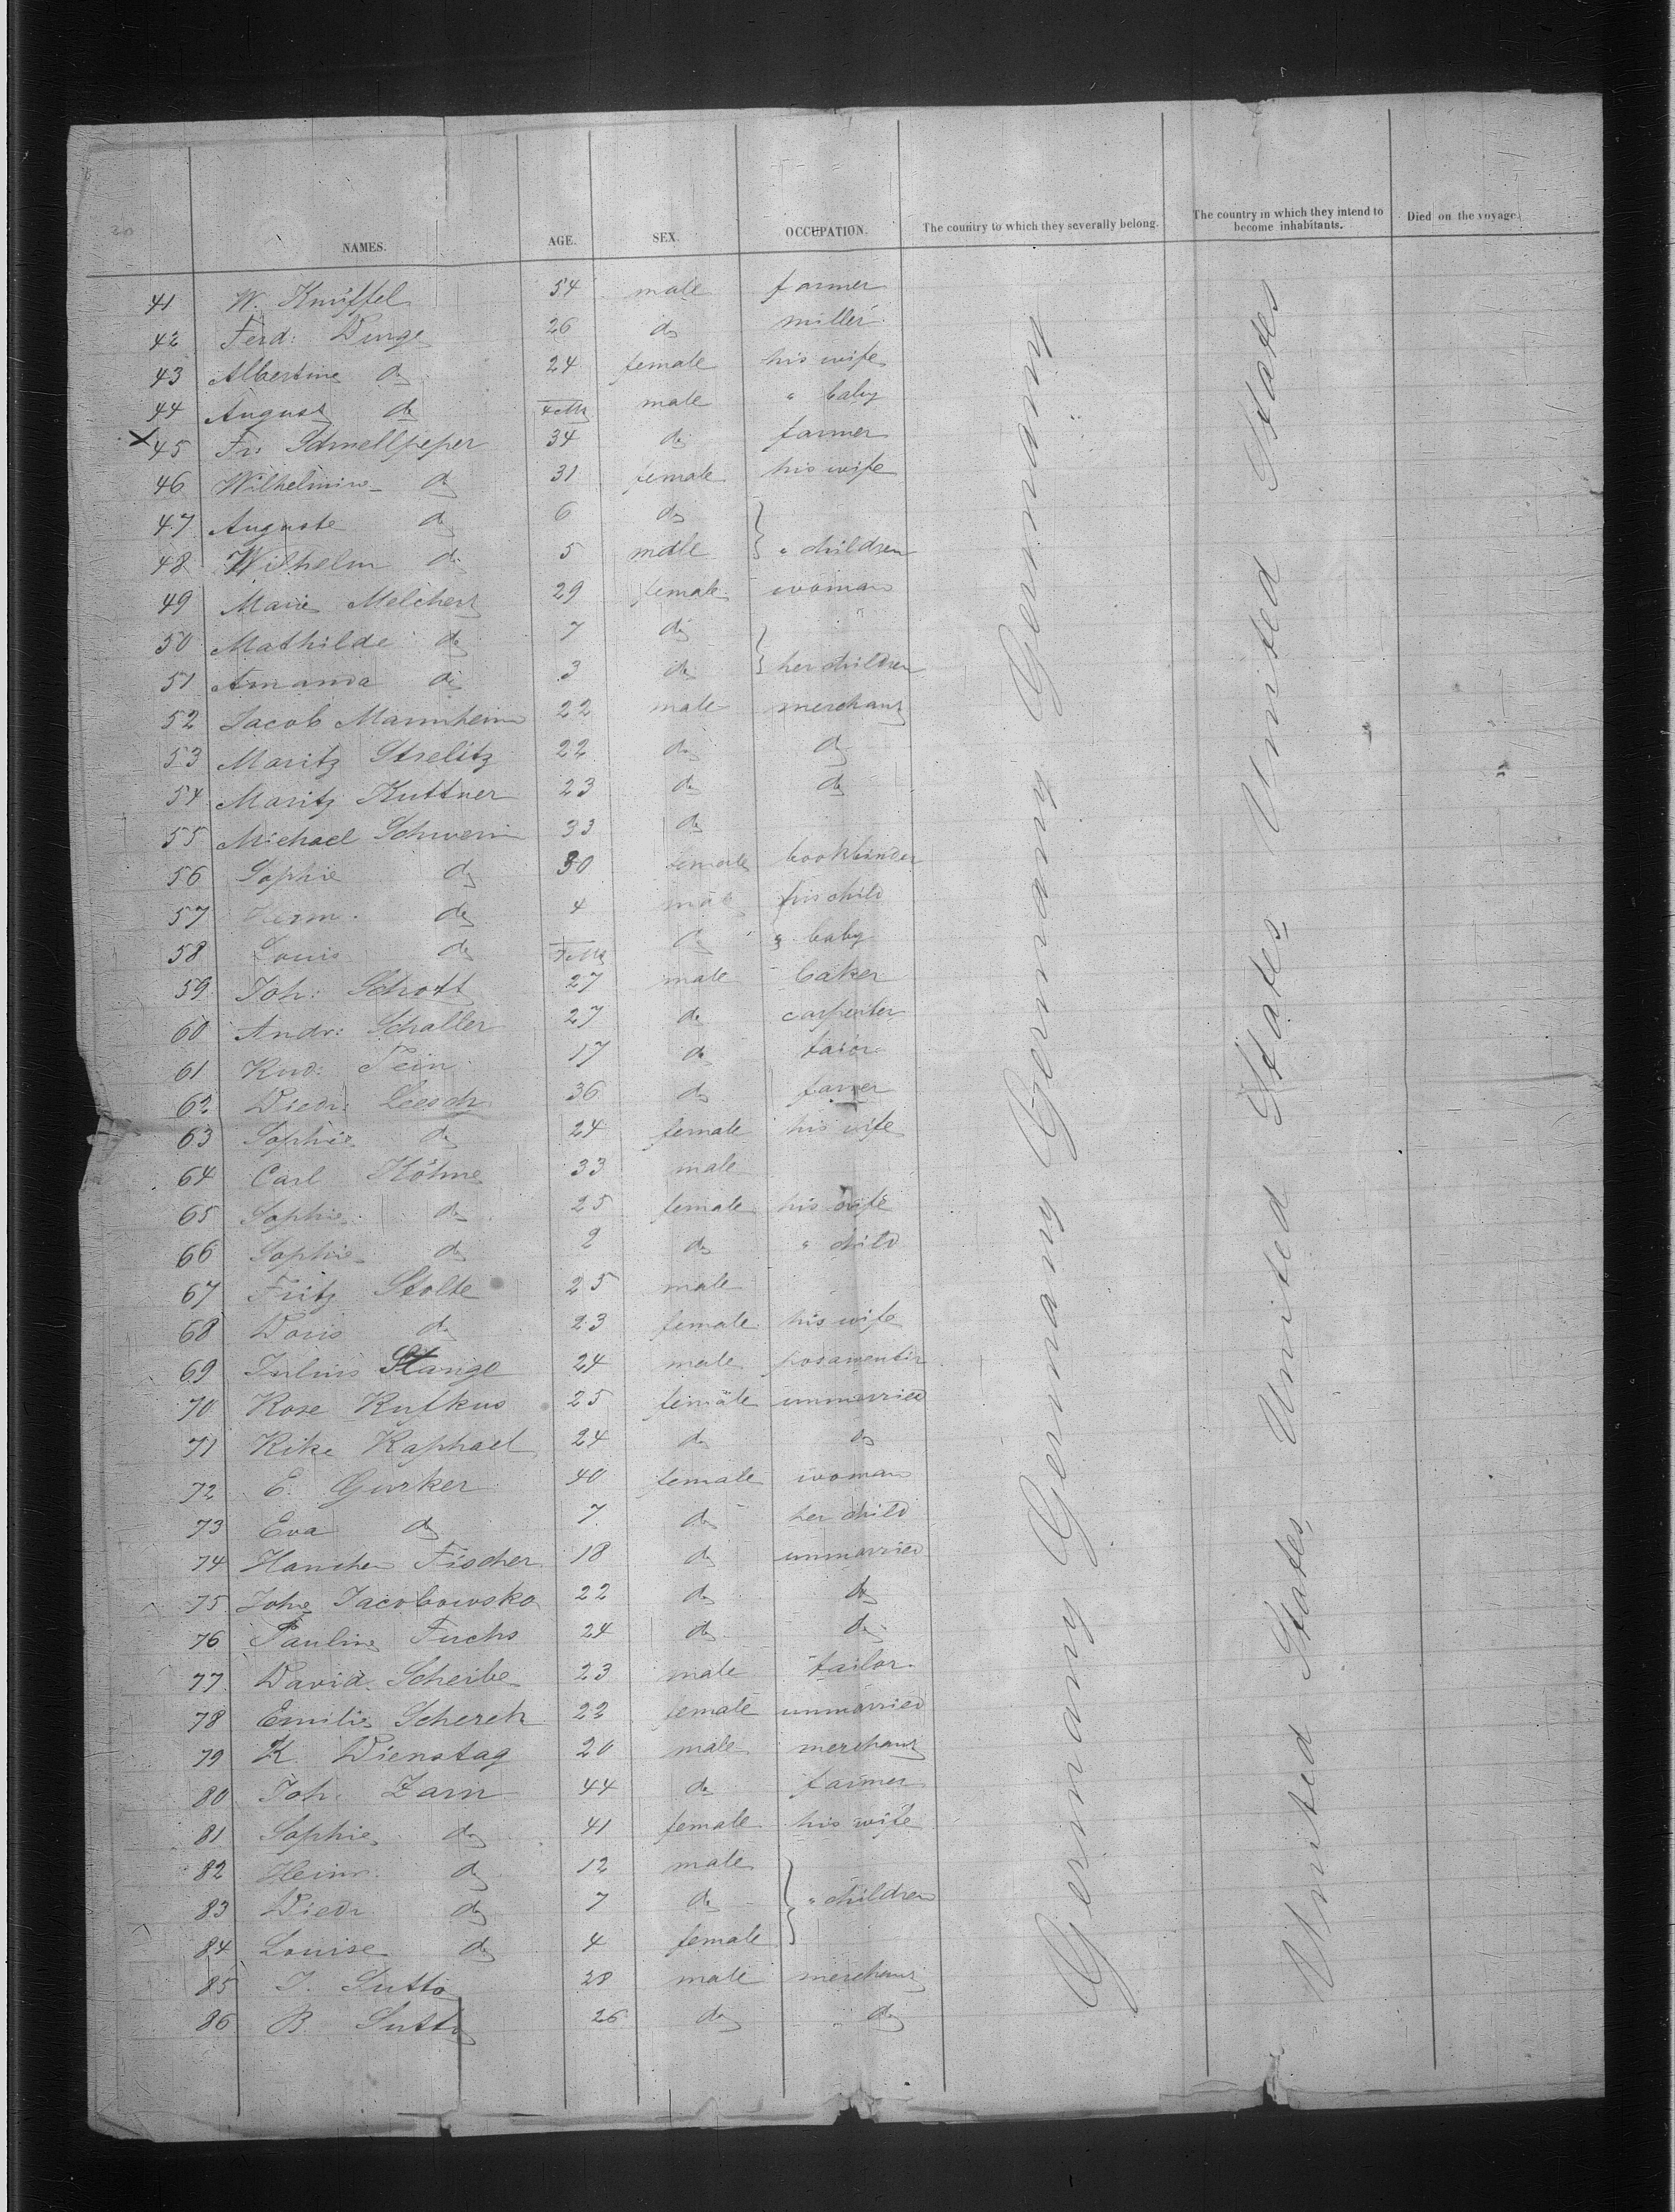 NAMES. AGE. SEX. OCCUPATION. The country to which they severally belong. The country in which they intend to become inhabitants. Died on the voyage.
41 W. Knüffel 54 male farmer
42 Ferd: Dinge 26 do miller
43 Albertine do 24 female his wife
44 August do male " baby
45 Fr: Schnellpeper 34 do farmer
46 Wilhelmine do 31 female his wife
47 Auguste do 6 do
48 Wilhelm do 5 male " children
49 Marie Melchert 29 female woman
50 Mathilde do 7 do
51 Amanda do 3 do her children
52 Jacob Mannheim 22 male merchant
53 Moritz Strelitz 22 do do
54 Moritz Kuttner 23 do do
55 Michael Schwerin 33 do
56 Sophie do 30 female bookbinder
57 Herm. do 4 male his child
58 Louis do do " baby
59 Joh: Schott 27 male baker
60 Andr: Schaller 27 do carpenter
61 Rud: Fein 17 do
62 Diedr: Leesch 36 do farmer
63 Sophie do 24 female his wife
64 Carl Köhne 33 male
65 Sophie do 25 female his wife
66 Sophie do 2 do " child
67 Fritz Stolte 25 male
68 Doris do 23 female his wife
69 Julius Stange 24 male posamentir
70 Rose Rufkus 25 female unmarried
71 Rike Raphael 24 do do
72 E. Gurker 40 female woman
73 Eva do 7 do her child
74 Hanchen Fischer 18 do unmarried
75 Johe Jacobowska 22 do do
76 Pauline Fuchs 24 do do
77 David Scheibe 23 male tailor
78 Emilie Scherek 22 female unmarried
79 K. Dienstag 20 male merchant
80 Joh. Zarn 44 do farmer
81 Sophie do 41 female his wife
82 Heinr. do 12 male
83 Diedr. do 7 do " children
84 Louise do 4 female
85 J. Sutto 28 male merchant
86 B. Sutto 26 do do
Germany Germany Germany Germany Germany
United States United States United States